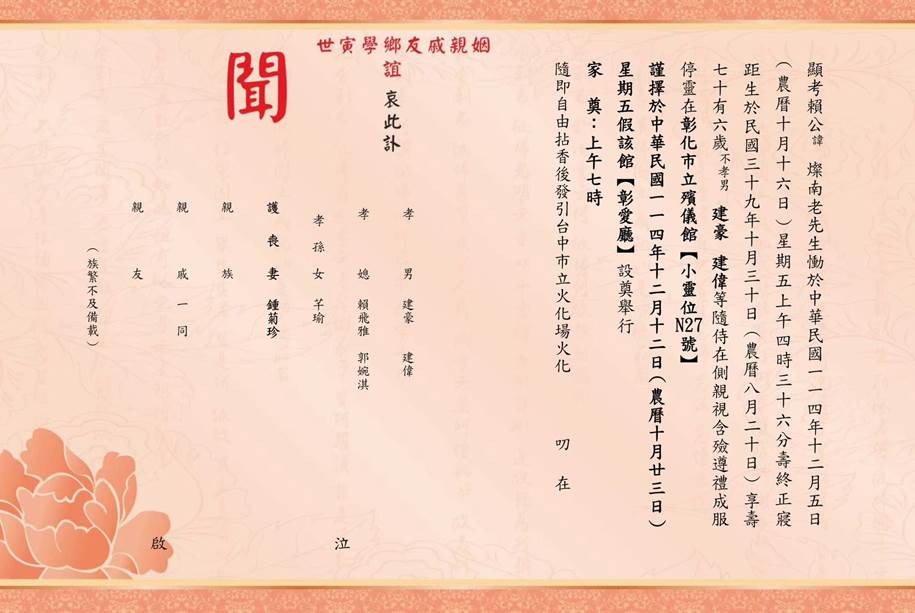 顯考賴公諱 燦南老先生慟於中華民國一一四年十二月五日
（農曆十月十六日）星期五上午四時三十六分壽終正寢
距生於民國三十九年十月三十日（農曆八月二十日）享壽
七十有六歲不孝男 建豪 建偉等隨侍在側親視含殮遵禮成服
停靈在彰化市立殯儀館【小靈位N27號】
謹擇於中華民國一一四年十二月十二日（農曆十月廿三日）
星期五假該館【彰愛廳】設奠舉行
家 奠：上午七時
隨即自由拈香後發引台中市立火化場火化 叨 在
世寅學鄉友戚親姻
誼 哀此訃
聞
孝 男 建豪 建偉
孝 媳 賴飛雅 郭婉淇
泣
孝 孫 女 芊瑜
護 喪 妻 鍾菊珍
親 族
親 戚 一 同
啟
親 友
（族繁不及備載）